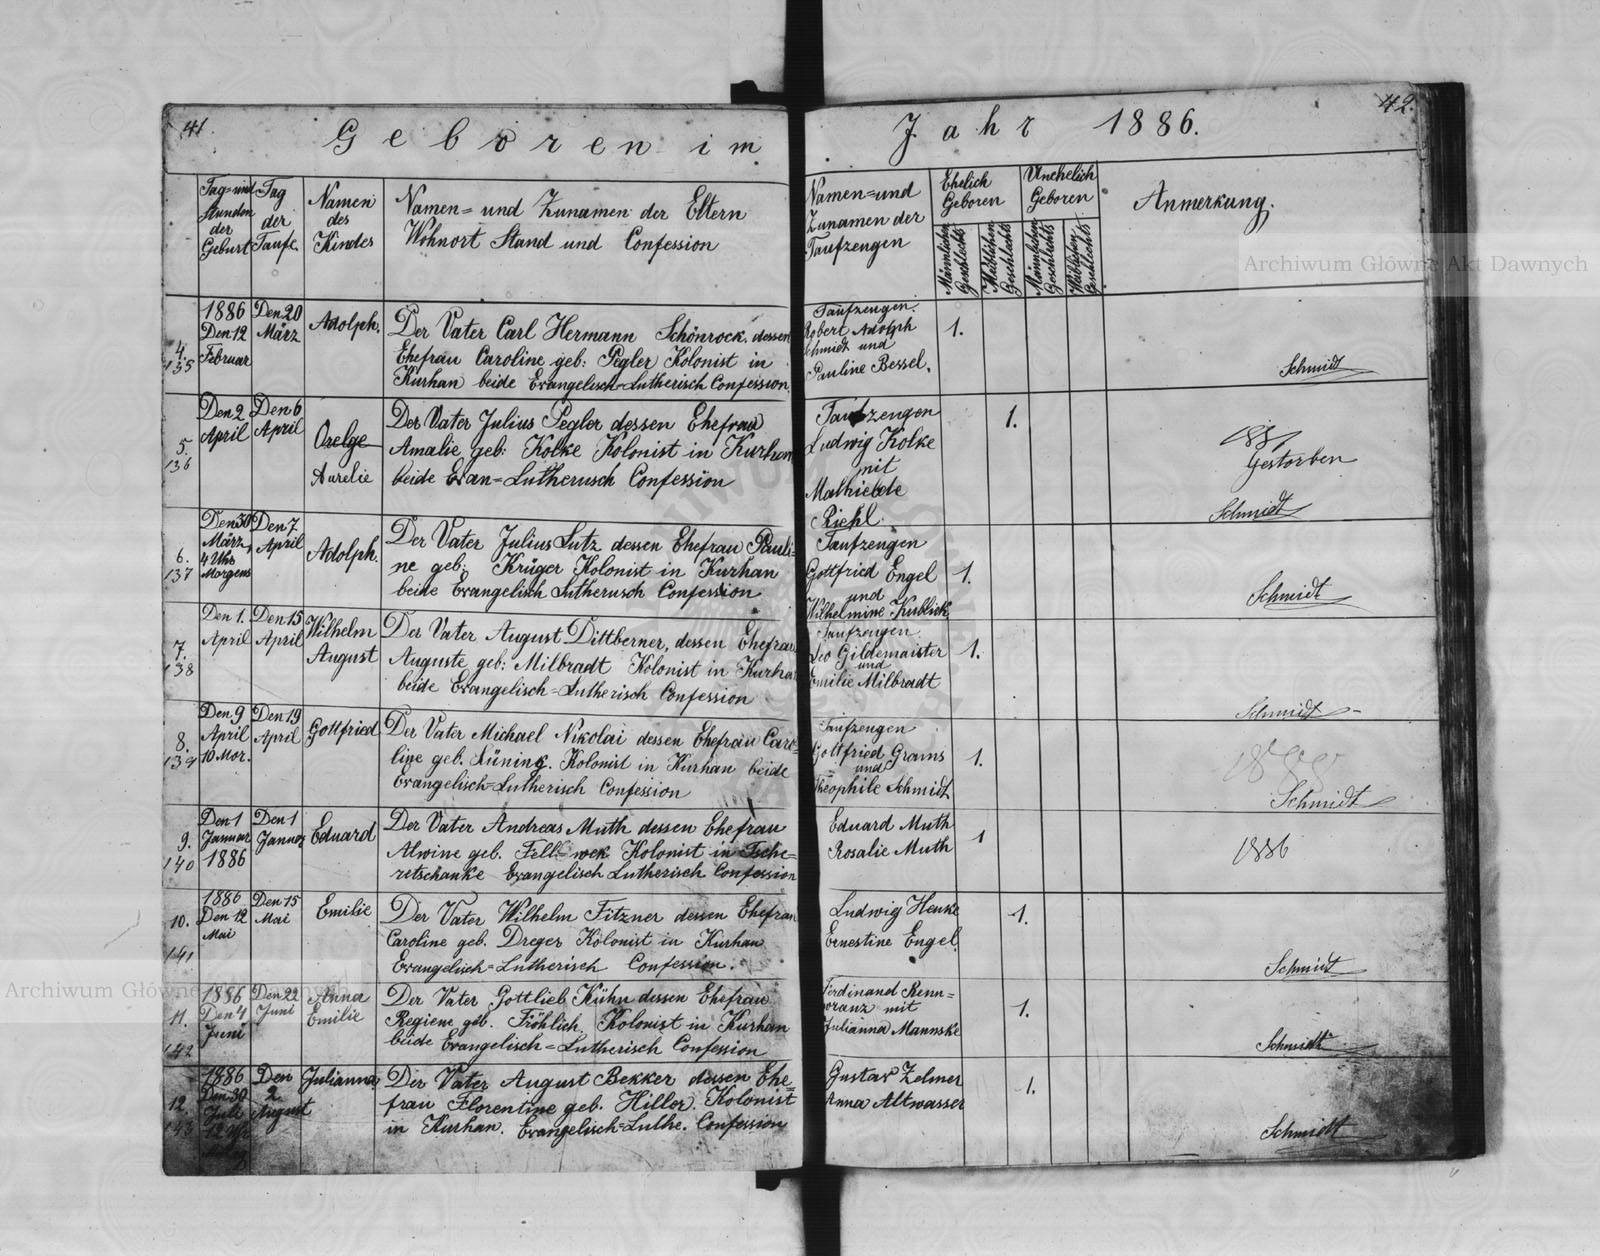 41.
Geboren im
Tag= und
Stunden
der
Geburt
Tag
der
Taufe.
Namen
des
Kindes
Namen= und Zunamen der Eltern
Wohnort Stand und Confession
4.
135
1886
Den 12
Februar
Den 20
März
Adolph.
Der Vater Carl Hermann Schönrock, dessen
Ehefrau Caroline geb: Pegler Kolonist in
Kurhan beide Evangelisch=Lutherisch Confession
5.
136
Den 2
April
Den 6
April
Aurelie
Der Vater Julius Pegler dessen Ehefrau
Amalie geb: Kolke Kolonist in Kurhan
beide Evan=Lutherusch Confession
6.
137
Den 30
März,
4 Uhr
Morgens
Den 7
April
Adolph.
Der Vater Julius Lutz dessen Ehefrau Pauli=
ne geb: Krüger Kolonist in Kurhan
beide Evangelisch Lutherusch Confession
7.
138
Den 1.
April
Den 15
April
Wilhelm
August
Der Vater August Dittberner, dessen Ehefrau
Auguste geb: Milbradt Kolonist in Kurhan
beide Evangelisch=Lutherisch Confession
8.
139
Den 9
April
10 Mor.
Den 19
April
Gottfried
Der Vater Michael Nikolai dessen Ehefrau Caro=
line geb. Kolonist in Kurhan beide
Evangelisch=Lutherisch Confession
9.
140
Den 1
Januar
1886
Den 1
Januar
Eduard
Der Vater Andreas Muth dessen Ehefrau
Alwine geb. Kolonist in Tsche=
retschanke Evangelisch Lutherisch Confession
10.
141
1886
Den 12
Mai
Den 15
Mai
Emilie
Der Vater Wilhelm Fitzner dessen Ehefrau
Caroline geb. Dreger Kolonist in Kurhan
Evangelisch=Lutherisch Confession.
11.
142
1886
Den 4
Juni
Den 22
Juni
Anna
Emilie
Der Vater Gottlieb Kühn dessen Ehefrau
Regiene geb. Fröhlich Kolonist in Kurhan
beide Evangelisch=Lutherisch Confession
12.
143
1886
Den 30
Juli
12 Uhr
Den
2
August
Julianna
Der Vater August Bekker dessen Ehe=
frau Florentine geb. Hiller. Kolonist
in Kurhan. Evangelisch=Luthe. Confession
42.
Jahr 1886.
Namen=und
Zunamen der
Taufzengen
Ehelich
Geboren
Unehelich
Geboren
Männlichen
Geschlechts
Weiblichen
Geschlechts
Männlichen
Geschlechts
Weiblichen
Geschlechts
Anmerkung.
Taufzengen.
Robert Adolph
Schmidt und
Pauline Bessel.
1.
Schmidt
Taufzengen
Ludwig Kolke
mit
Mathielde
Riehl.
1.
1887
Gestorben
Schmidt
Taufzengen
Gottfried Engel
und
Wilhelmine Kublick
1.
Schmidt
Taufzengen
Leo Gildemaister
und
Emilie Milbradt
1.
Schmidt
Taufzengen
Gottfried Grams
und
Theophile Schmidt
1.
1888
Schmidt
Eduard Muth
Rosalie Muth
1
1886
Ludwig Henke
Ernestine Engel.
1.
Schmidt
Ferdinand Renn=
woranz mit
Julianna Mannske
1.
Schmidt
Gustav Zelmer
Anna Altwasser
1.
Schmidt
Archiwum Główne Akt Dawnych
Archiwum Główne Akt Dawnych